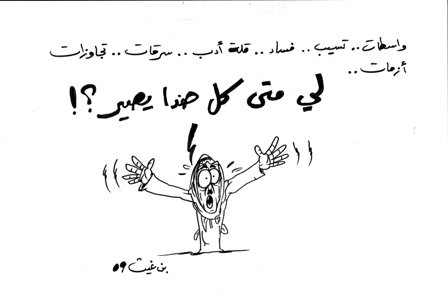 واسطات.. تسيب.. فساد.. قلة أدب.. سرقات.. تجاوزات
أزمات..
لي متى كل هذا يصير؟!
بن غيث ٠٩